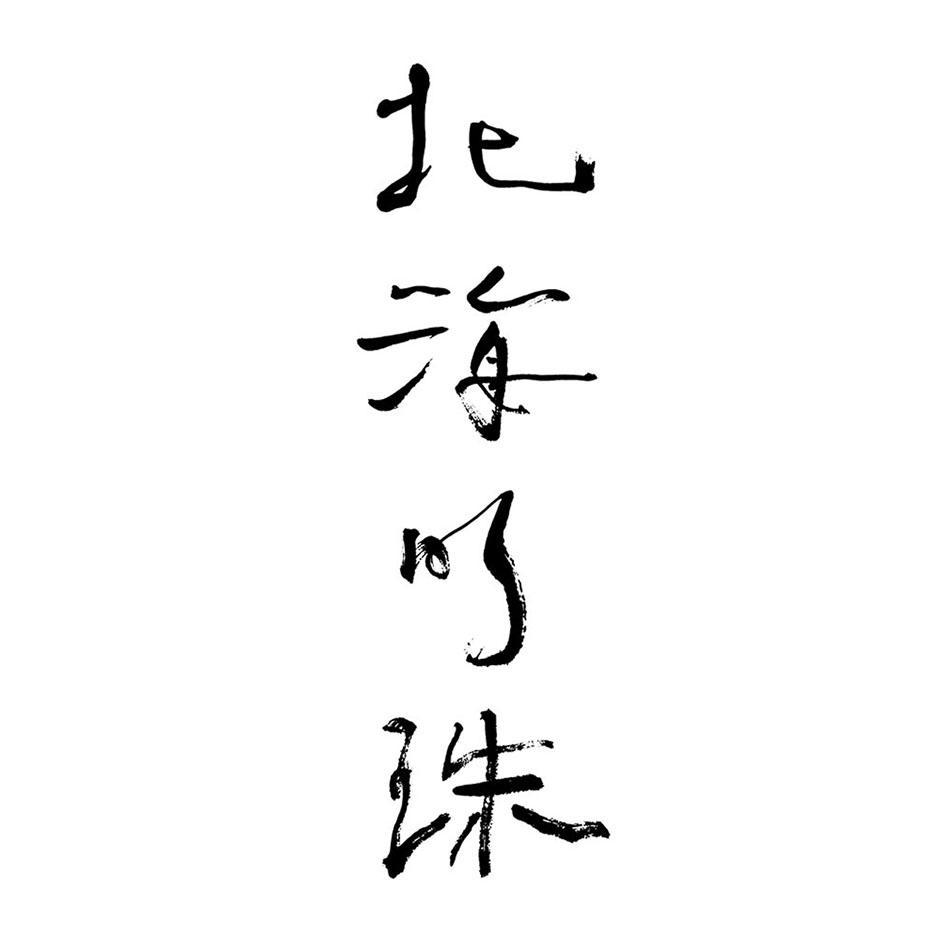 北海明珠